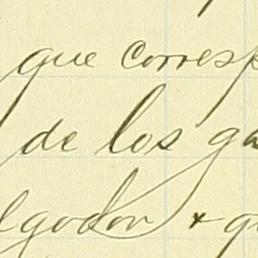 que corresp
de los ga
lgodon + q